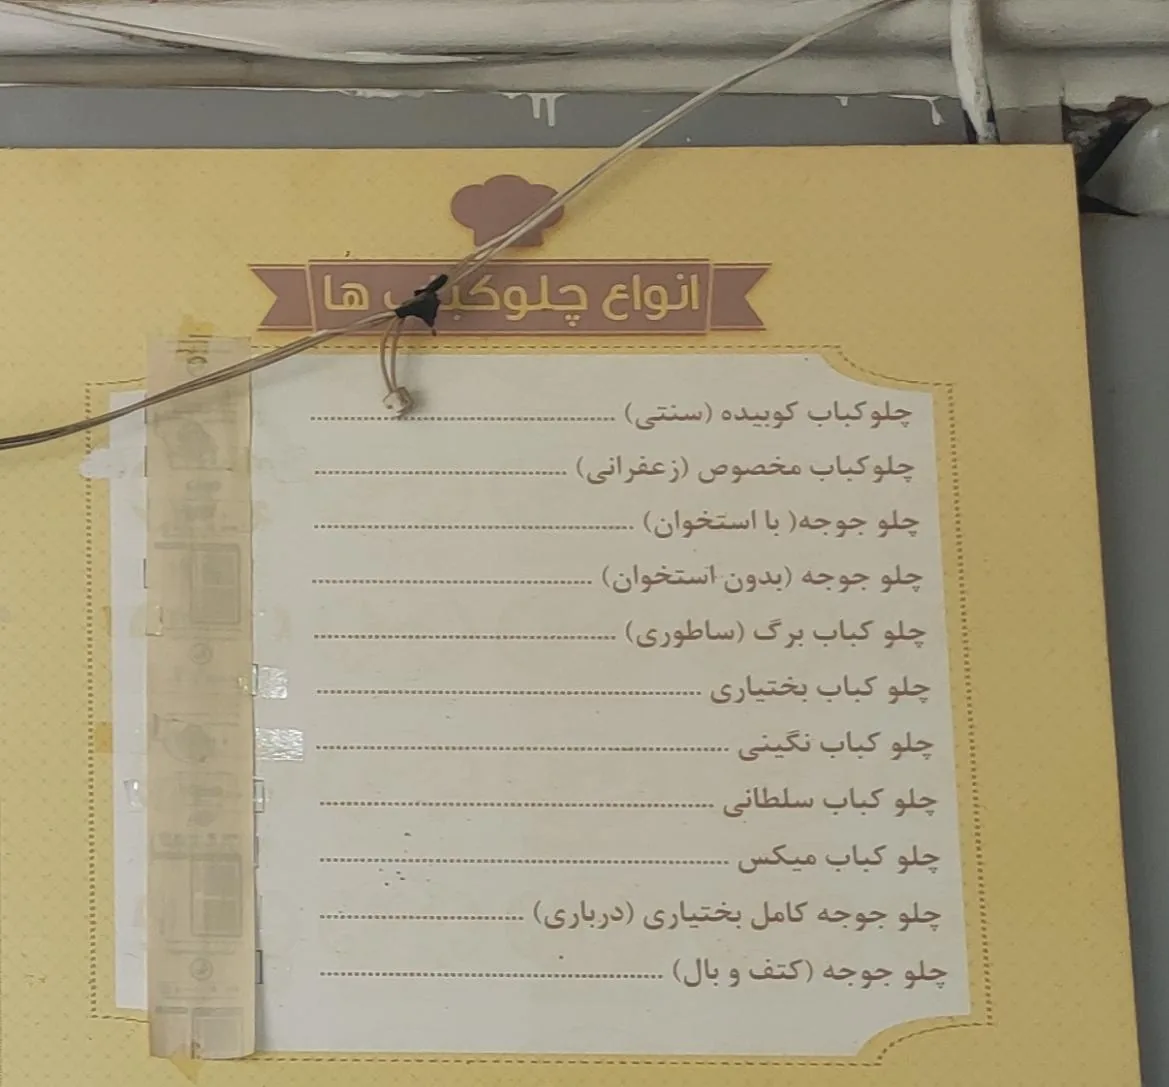 انواع چلوکباب ها
چلوکباب کوبیده (سنتی) ......................................................
چلوکباب مخصوص (زعفرانی) .............................................
چلو جوجه( با استخوان) .........................................................
چلو جوجه (بدون استخوان) ..................................................
چلو کباب برگ (ساطوری) ......................................................
چلو کباب بختیاری .....................................................................
چلو کباب نگینی ..........................................................................
چلو کباب سلطانی ......................................................................
چلو کباب میکس .........................................................................
چلو جوجه کامل بختیاری (درباری) ....................................
چلو جوجه (کتف و بال) .............................................................